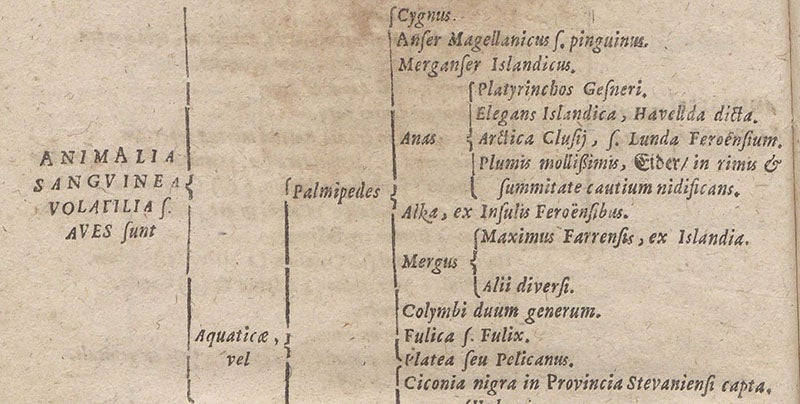 Cygnus.
Anſer Magellanicus ſ. pinguinus.
Merganſer Islandicus.
Platyrinchos Geſneri.
Elegans Islandica, Havellda dicta.
Anas
Arctica Cluſij, ſ. Lunda Feroënſium.
Plumis mollißimis, Eider/ in rimis &
ſummitate cautium nidificans.
ANIMALIA
SANGVINEA
VOLATILIA ſ.
AVES ſunt
Palmipedes
Alka, ex Inſulis Feroënſibus.
Maximus Farrenſis, ex Islandia.
Mergus
Alii diverſi.
Colymbi duum generum.
Aquaticæ,
vel
Fulica ſ. Fulix.
Platea ſeu Pelicanus.
Ciconia nigra in Provincia Stevanienſi capta.